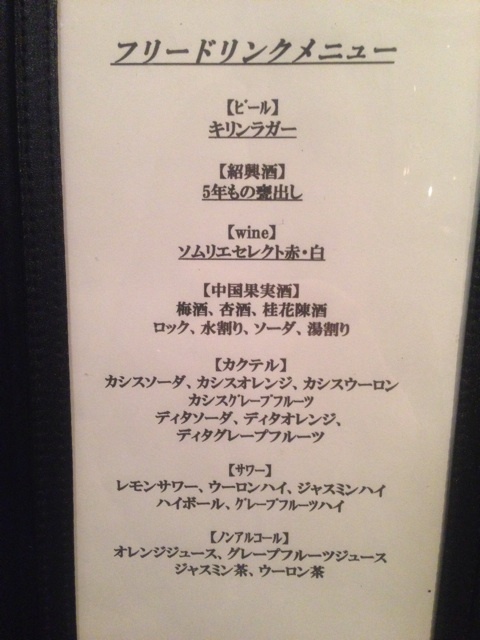 フリードリンクメニュー
【ﾋﾞｰﾙ】
キリンラガー
【紹興酒】
5年もの甕出し
【wine】
ソムリエセレクト赤・白
【中国果実酒】
梅酒、杏酒、桂花陳酒
ロック、水割り、ソーダ、湯割り
【カクテル】
カシスソーダ、カシスオレンジ、カシスウーロン
カシスｸﾞﾚｰﾌﾟﾌﾙｰﾂ
ディタソーダ、ディタオレンジ、
ディタグレープフルーツ
【ｻﾜｰ】
レモンサワー、ウーロンハイ、ジャスミンハイ
ハイボール、ｸﾞﾚｰﾌﾟﾌﾙｰﾂハイ
【ﾉﾝｱﾙｺｰﾙ】
オレンジジュース、グレープフルーツジュース
ジャスミン茶、ウーロン茶